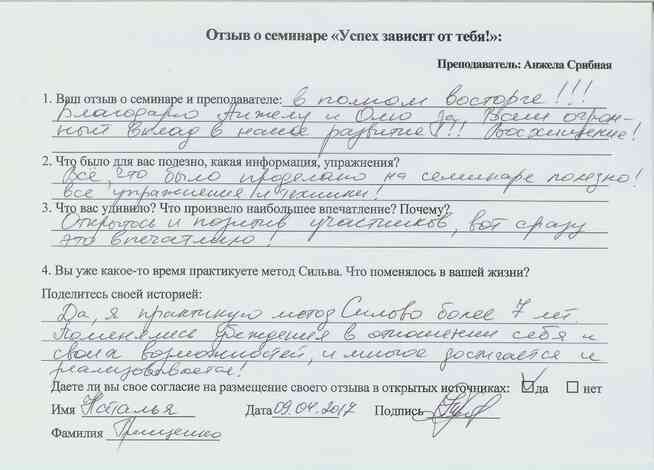 Отзыв о семинаре «Успех зависит от тебя!»:
Преподаватель: Анжела Срибная
1. Ваш отзыв о семинаре и преподавателе: в полном восторге!!!
Благодарю Анжелу и Олю за Ваш огром-
ный вклад в наше развитие!!! Восхищение!
2. Что было для вас полезно, какая информация, упражнения?
Всё, что было проделано на семинаре полезно!
все упражнения и техники!
3. Что вас удивило? Что произвело наибольшее впечатление? Почему?
Открытость и позитив участников, вот сразу
это впечатлило!
4. Вы уже какое-то время практикуете метод Сильва. Что поменялось в вашей жизни?
Поделитесь своей историей:
Да, я практикую метод Сильва более 7 лет.
Поменялись убеждения в отношении себя и
своих возможностей, и многое достигается и
реализовывается!
Даете ли вы свое согласие на размещение своего отзыва в открытых источниках: да нет
Имя Наталья Дата 09.04.2017 Подпись
Фамилия